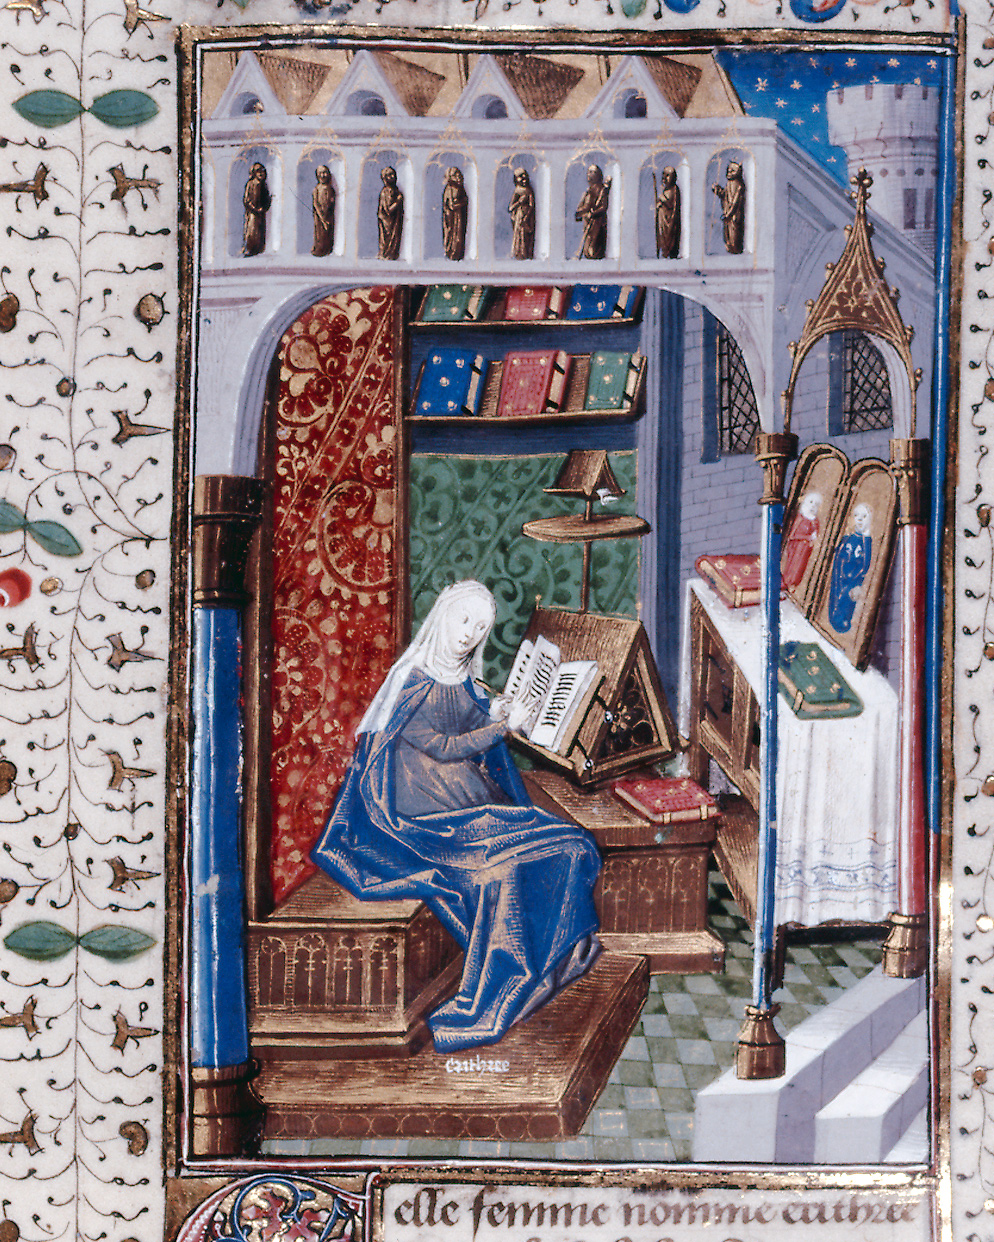 erithree
elle femme nomme erithree